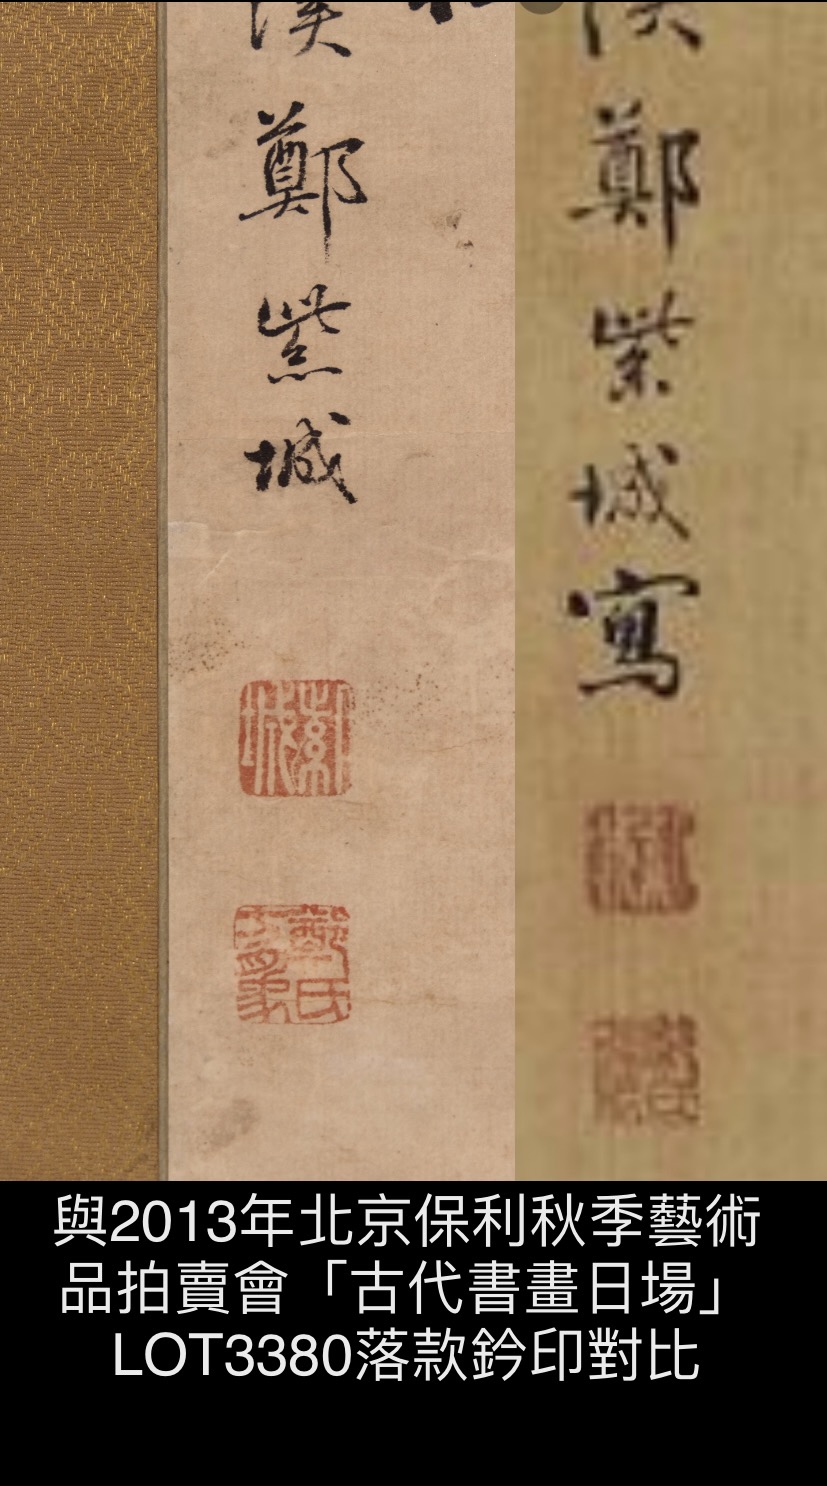 鄭
紫
城
紫城
鄭氏
鄭
紫
城
寫
與2013年北京保利秋季藝術
品拍賣會「古代書畫日場」
LOT3380落款鈐印對比